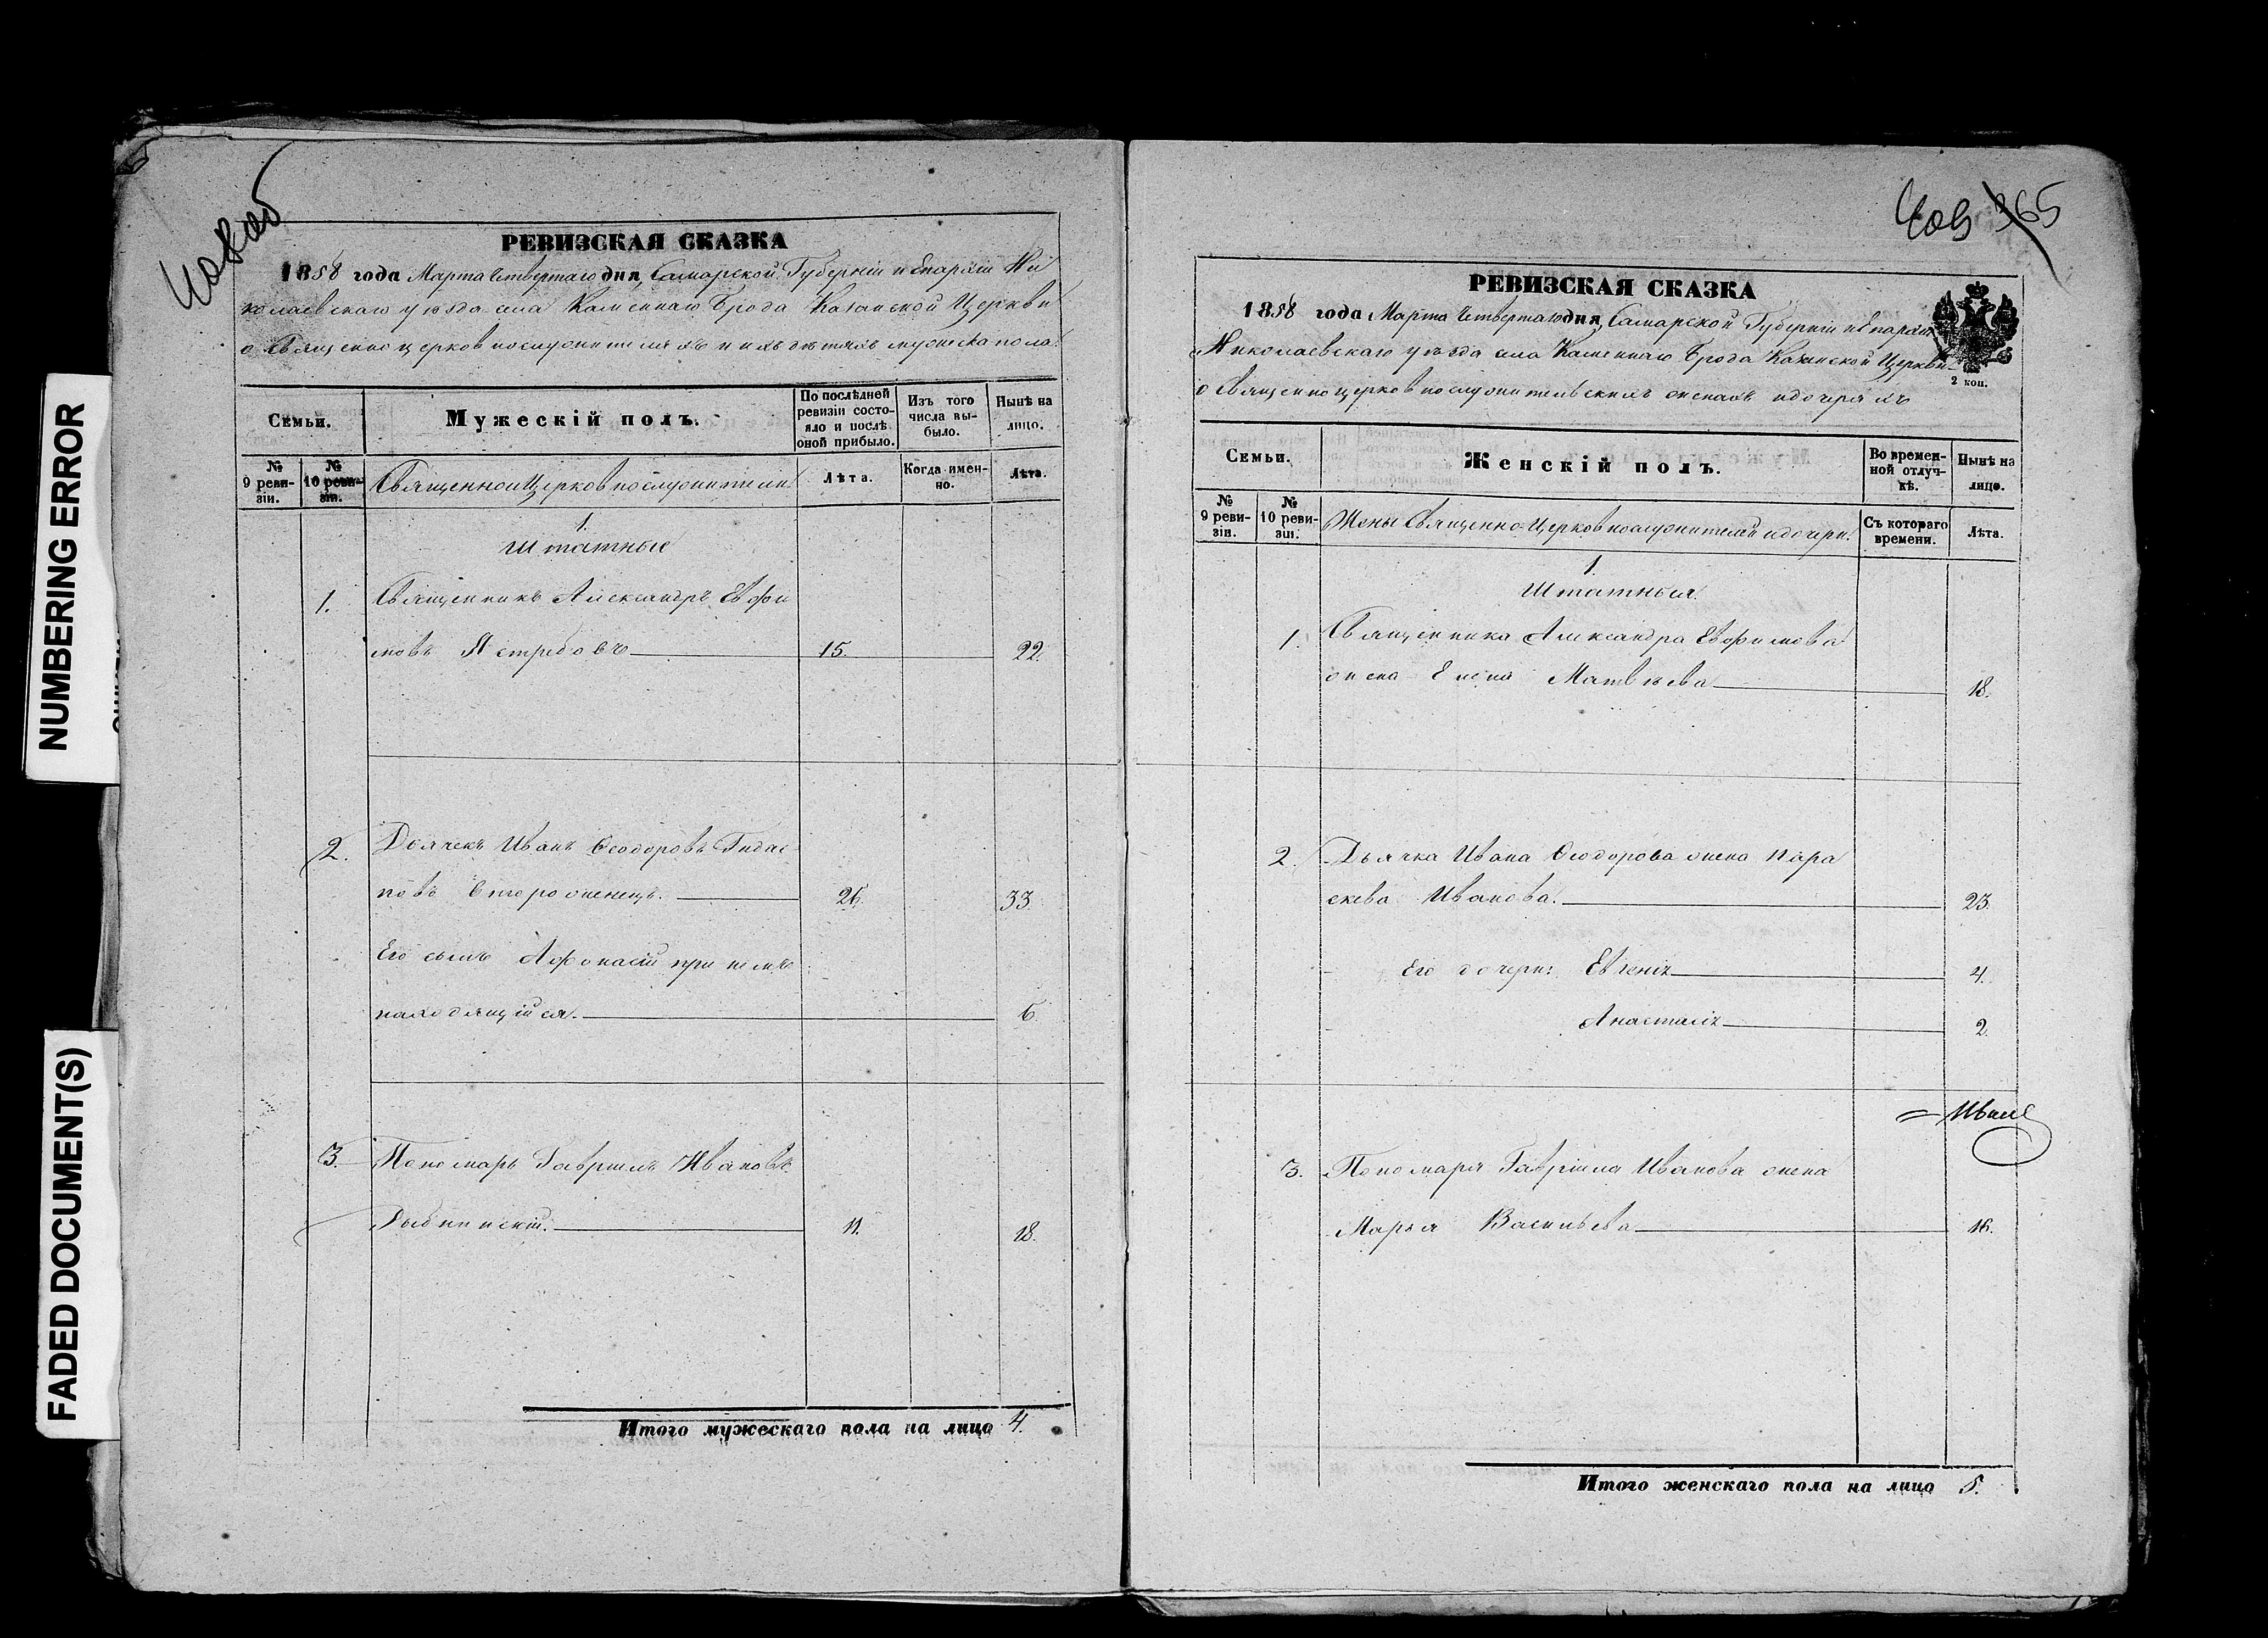 NUMBERING ERROR
FADED DOCUMENT(S)
РЕВИЗСКАЯ СКАЗКА
1858 года Марта Четвертаго дня, Самарской Губерніи и Епархіи Ни
колаевскаго уѣзда села Каменнаго Брода Казанской Церкви
о Священноцерковнослужителяхъ и ихъ дѣтяхъ мужеска пола.
Семьи.
Мужескій полъ.
По послѣдней ревизіи состо-
яло и послѣ
оной прибыло.
Изъ того
числа вы-
было.
Нынѣ на
лицо.
№
9 реви-
зіи.
№
10 реви-
зіи.
Священно и Церковнослужители
Лѣта.
Когда имен-
но.
Лѣта.
1.
Штатные
1. Священникъ Александръ Евфи
мовъ Ястребовъ 15. 22.
2. Дьячекъ Иванъ Ѳеодоровъ
новъ второженецъ. 26. 33.
Его сынъ Афонасій при немъ
находящійся. 6.
3. Пономарь Гавріилъ Ивановъ
11. 18.
Итого мужескаго пола на лицо 4.
365
РЕВИЗСКАЯ СКАЗКА
1858 года Марта Четвертаго дня, Самарской Губерніи и Епархіи
Николаевскаго уѣзда села Каменнаго Брода Казанской Церкви
о Священноцерковнослужительскихъ женахъ и дочеряхъ
2 коп.
Семьи.
Женскій полъ.
Во времен-
ной отлуч-
кѣ.
Нынѣ на
лицо.
№
9 реви-
зіи.
№
10 реви-
зіи.
Жены Священно-Церковнослужителей и дочери.
Съ котораго
времени.
Лѣта.
1.
Штатныя.
1. Священника Александра Евфимова
жена Елена Матвѣева 18.
2. Дьячка Ивана Ѳеодорова жена Пара
скева Иванова. 23.
Его дочери: Евгенія 4.
Анастасія 2.
3. Пономаря Гавріила Иванова жена
Марья Васильева 16.
Итого женскаго пола на лицо 5.